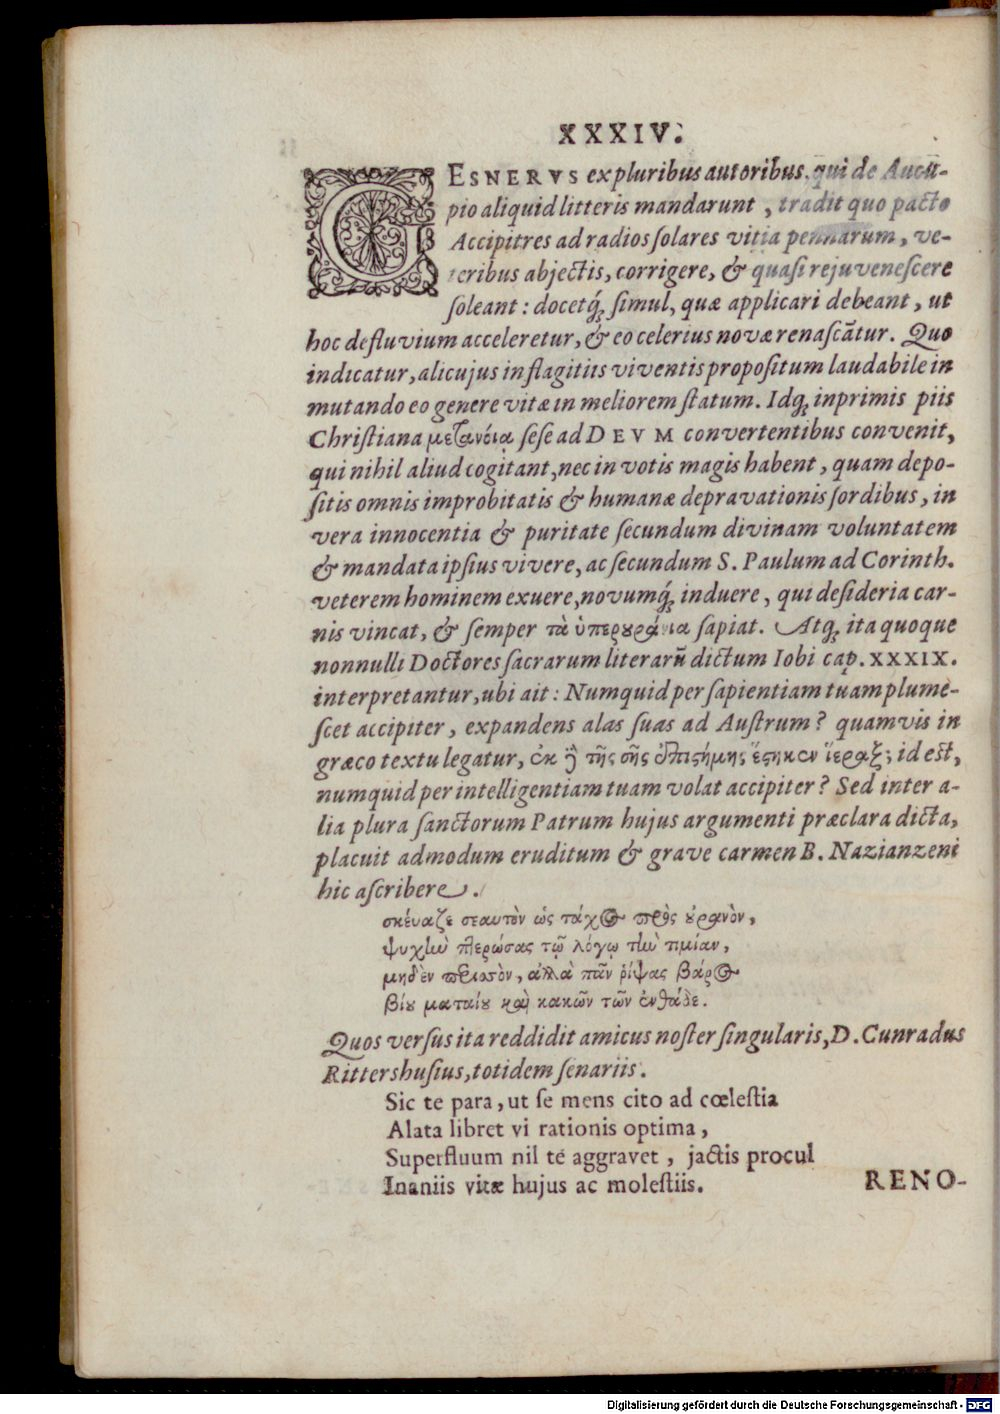 XXXIV.
GESNERVS ex pluribus autoribus, qui de Aucu-
pio aliquid litteris mandarunt, tradit quo pacto
Accipitres ad radios ſolares vitia pennarum, ve-
teribus abjectis, corrigere, & quaſi rejuveneſcere
ſoleant: docetq́; ſimul, quæ applicari debeant, ut
hoc defluvium acceleretur, & eo celerius novæ renaſcãtur. Quo
indicatur, alicujus in flagitiis viventis propoſitum laudabile in
mutando eo genere vitæ in meliorem ſtatum. Idq; inprimis piis
Chriſtiana μετανόια ſeſe ad DEVM convertentibus convenit,
qui nihil aliud cogitant, nec in votis magis habent, quam depo-
ſitis omnis improbitatis & humanæ depravationis ſordibus, in
vera innocentia & puritate ſecundum divinam voluntatem
& mandata ipſius vivere, ac ſecundum S. Paulum ad Corinth.
veterem hominem exuere, novumq́; induere, qui deſideria car-
nis vincat, & ſemper τὰ ὑπερουράνια ſapiat. Atq; ita quoque
nonnulli Doctores ſacrarum literarũ dictum Iobi cap. XXXIX.
interpretantur, ubi ait: Numquid per ſapientiam tuam plume-
ſcet accipiter, expandens alas ſuas ad Auſtrum? quamvis in
græco textu legatur, ἐκ ἢ τῆς σῆς ἐπιστήμης ἕστηκεν ἱέραξ; id eſt,
numquid per intelligentiam tuam volat accipiter? Sed inter a-
lia plura ſanctorum Patrum hujus argumenti præclara dicta,
placuit admodum eruditum & grave carmen B. Nazianzeni
hic aſcribere.
σκέυαζε σεαυτὸν ὡς τάχος πρὸς οὐρανὸν,
ψυχὴν πτερώσας τῷ λόγῳ τὴν τιμίαν,
μηδὲν περισσὸν, ἀλλὰ πᾶν ῥίψας βάρος
βίου ματαίου καὶ κακῶν τῶν ἐνθάδε.
Quos verſus ita reddidit amicus noſter ſingularis, D. Cunradus
Rittershuſius, totidem ſenariis.
Sic te para, ut ſe mens cito ad cœleſtia
Alata libret vi rationis optima,
Superfluum nil te aggravet, jactis procul
Inaniis vitæ hujus ac moleſtiis.
RENO-
Digitalisierung gefördert durch die Deutsche Forschungsgemeinschaft - DFG